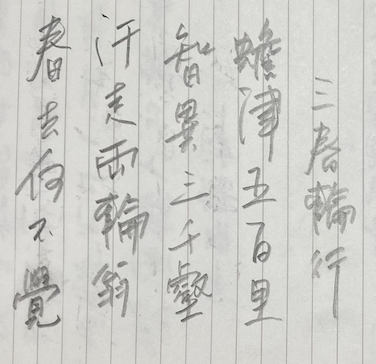 三春輪行
蟾津五百里
智異三千壑
汗走兩輪翁
春去何不覺